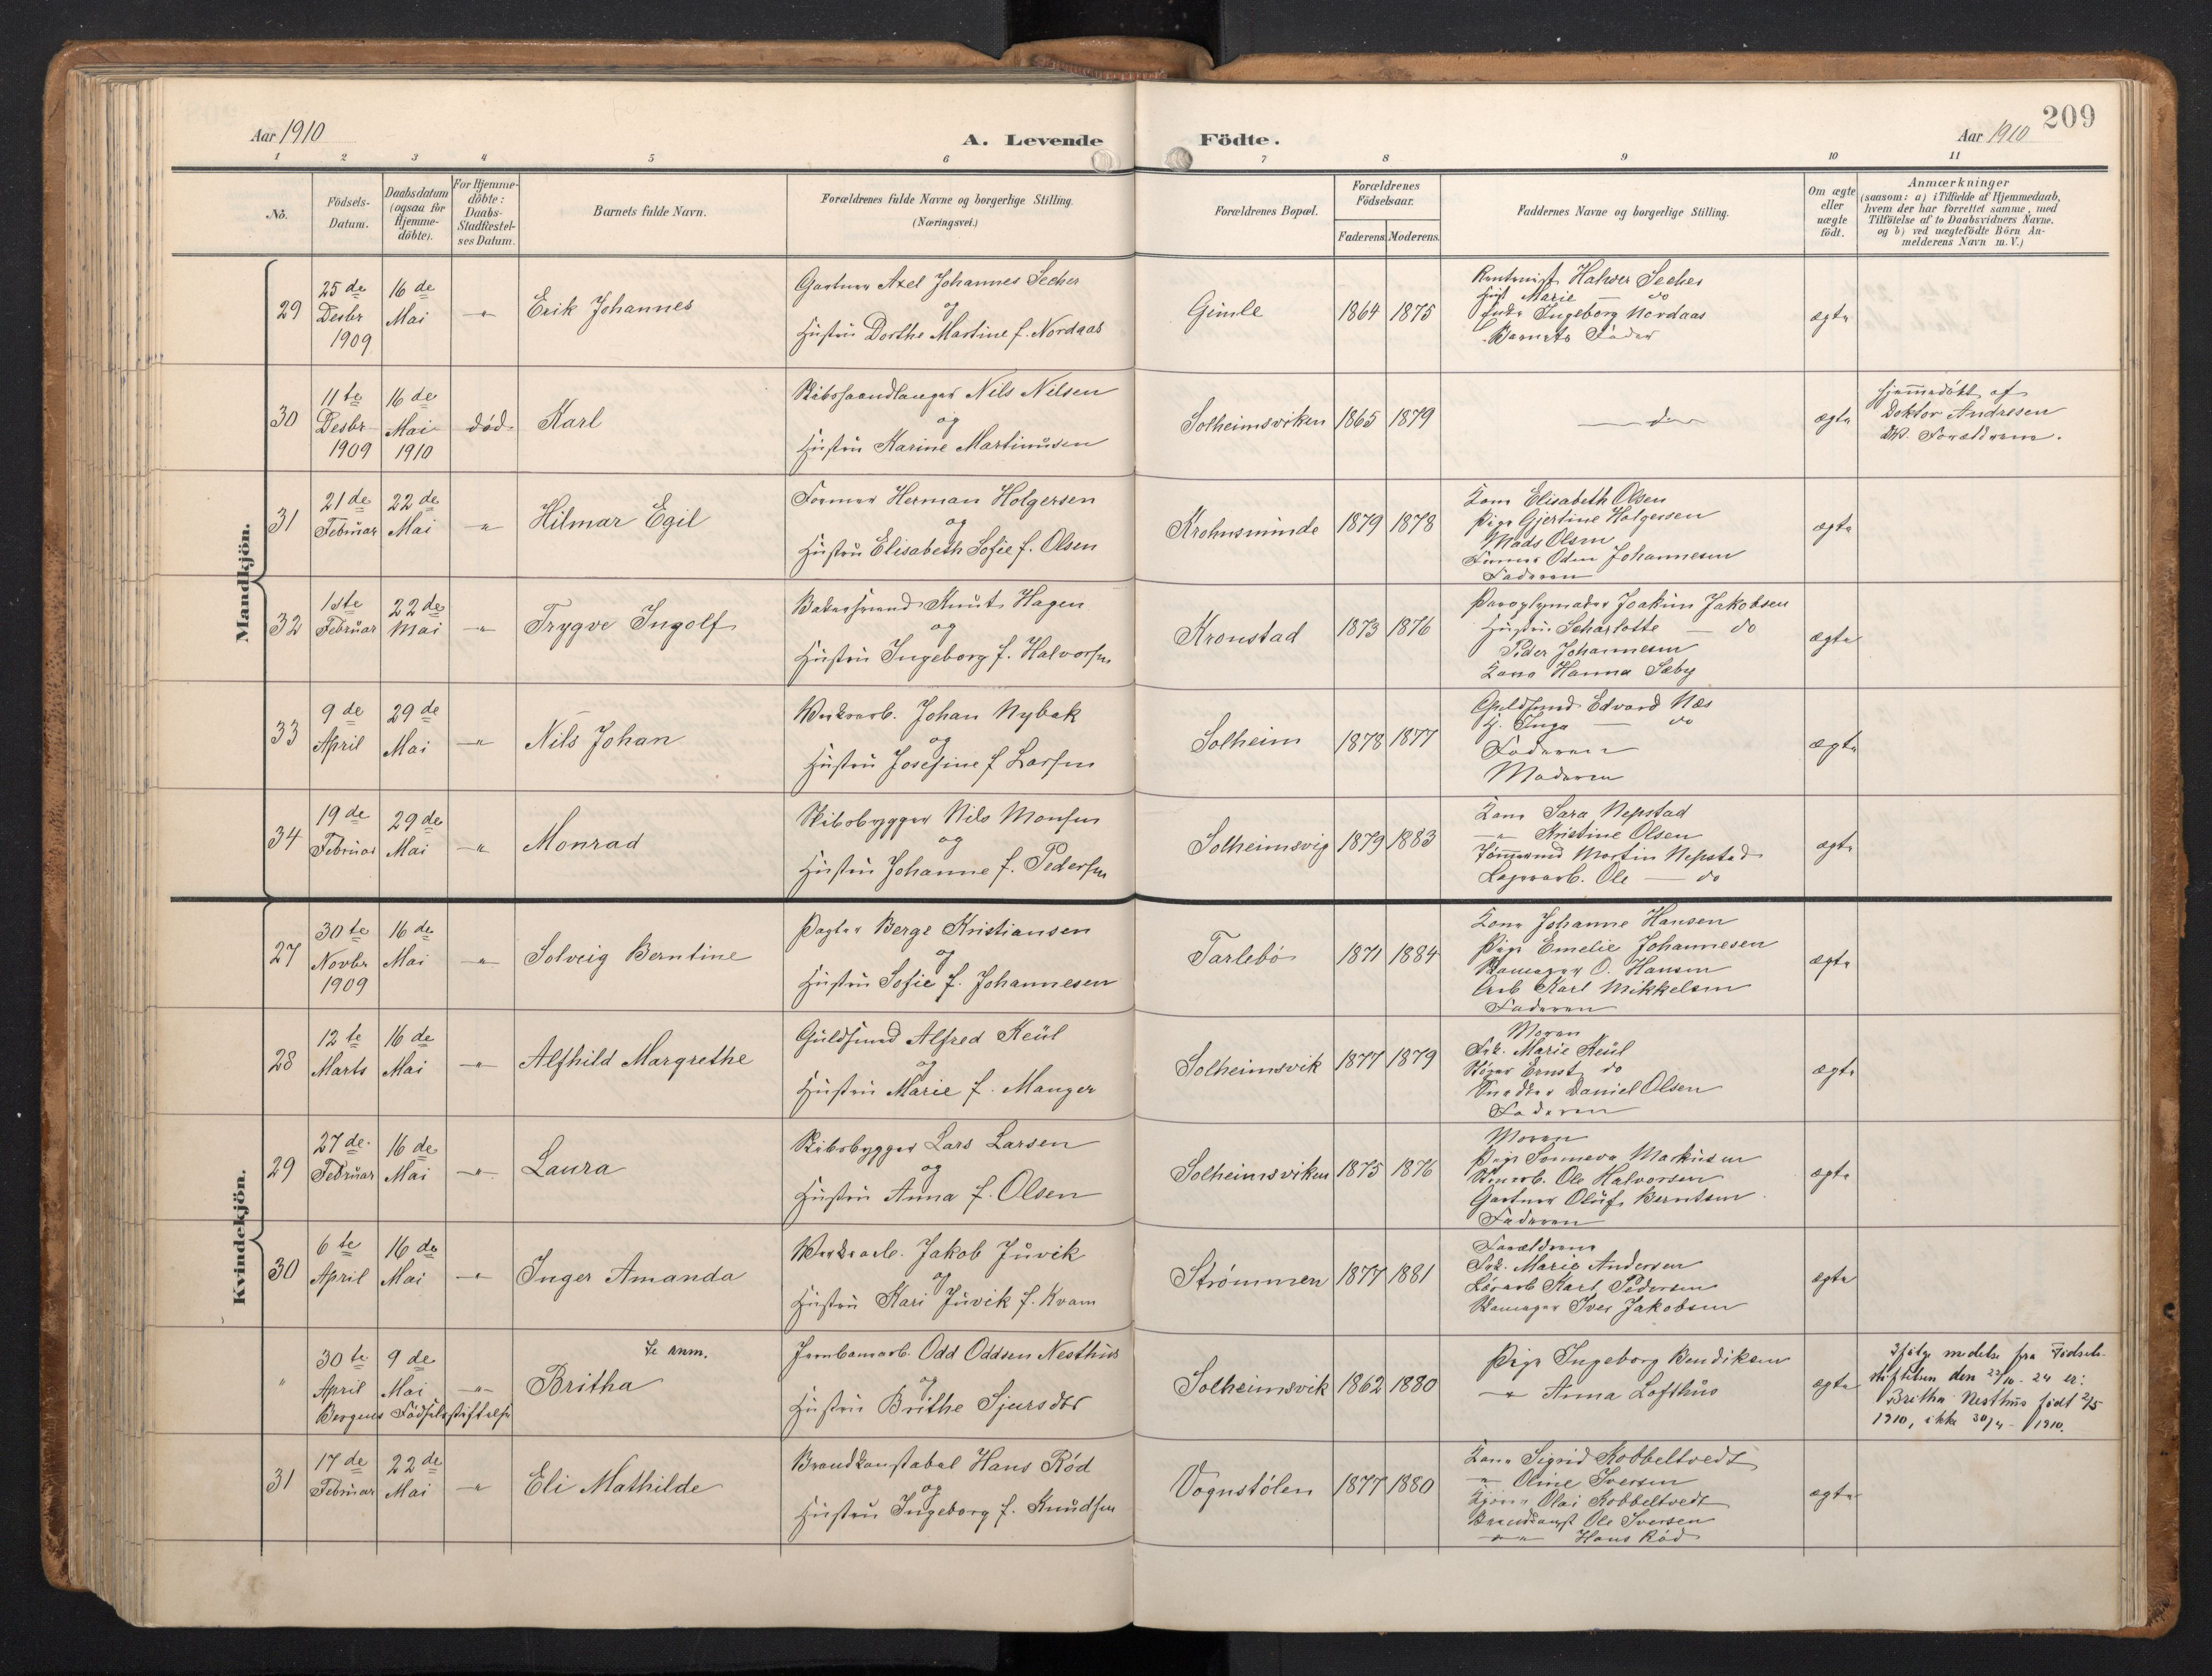 Aar 1910
A. Levende
Födte.
Aar 1910
209
1 2 3 4 5 6 7 8 9 10 11
No.
Födsels-
Datum.
Daabsdatum
(ogsaa for
Hjemme-
döbte).
For Hjemme-
döbte:
Daabs-
Stadfæstel-
ses Datum.
Barnets fulde Navn.
Forældrenes fulde Navne og borgerlige Stilling.
(Næringsvei.)
Forældrenes Bopæl.
Forældrenes
Födselsaar.
Faderens. Moderens.
Faddernes Navne og borgerlige Stilling.
Om ægte
eller
uægte
födt.
Anmærkninger
(saasom: a) i Tilfælde af Hjemmedaab,
hvem der har forrettet samme, med
Tilföielse af to Daabsvidners Navne.
og b) ved uægtefödte Börn An-
melderens Navn m. V.)
Mandkjön.
29
25de
Desbr
1909
16de
Mai
"
Erik Johannes
Gartner Axel Johannes Secher
og
Hustru Dorthe Martine f. Nordaas
Gimle
1864 1875
Halver Secher
Marie — do
Ingeborg Nordaas
Barnets Fader
ægte
30
11te
Desbr
1909
16de
Mai
1910
død
Karl
Skibshaandlanger Nils Nilsen
og
Hustru Karine Martinusen
Solheimsviken
1865 1879
ægte
Hjemmedöbt af
Doktor Andresen
Forældrene.
31
21de
Februar
22de
Mai
"
Hilmar Egil
Former Herman Holgersen
og
Hustru Elisabeth Sofie f. Olsen
Krohnsminde
1879 1878
Kone Elisabeth Olsen
Pige Gjertine Holgersen
Mads Olsen
Former Odin Johannesen
Faderen
ægte
32
1ste
Februar
22de
Mai
"
Trygve Ingolf
Bakersvend Knut Hagen
og
Hustru Ingeborg f. Halvorsen
Kronstad
1873 1876
Paraplymaker Joakim Jakobsen
Hustru Scharlotte — do
Peder Johannesen
Kone Hanna Sæby
ægte
33
9de
April
29de
Mai
"
Nils Johan
Verksarb. Johan Nybak
og
Hustru Josefine f Larsen
Solheim
1878 1877
Guldsmed Edvard Næs
H. Inga — do
Faderen
Moderen
ægte
34
19de
Februar
29de
Mai
"
Monrad
Skibsbygger Nils Monsen
og
Hustru Johanne f. Pedersen
Solheimsvig
1879 1883
Kone Sara Nepstad
" Kristine Olsen
Tømmermd Martin Nepstad
Lagerarb. Ole — do
ægte
Kvindekjön.
27
30te
Novbr
1909
16de
Mai
"
Solveig Berntine
Pagter Berge Kristiansen
og
Hustru Sofie f. Johannesen
Tarlebø
1871 1884
Kone Johanne Hansen
Pige Emelie Johannesen
O. Hansen
Arb Karl Mikkelsen
Faderen
ægte
28
12te
Marts
16de
Mai
"
Alfhild Margrethe
Guldsmed Alfred Keül
og
Hustru Marie f. Manger
Solheimsvik
1877 1879
Moren
Frk. Marie Keül
Ernst do
Snedker Daniel Olsen
Faderen
ægte
29
27de
Februar
16de
Mai
"
Laura
Skibsbygger Lars Larsen
og
Hustru Anna f. Olsen
Solheimsviken
1875 1876
Moren
Pige Sonneva Markusen
Ole Halvorsen
Gartner Oluf Berntsen
Faderen
ægte
30
6te
April
16de
Mai
"
Inger Amanda
Verksarb. Jakob Juvik
og
Hustru Kari Juvik f. Kvam
Strömmen
1877 1881
Forældrene
Frk. Marie Andersen
Karl Pedersen
Iver Jakobsen
ægte
"
30te
April
9de
Mai
Bergens Fødselsstiftelse
"
Se anm.
Britha
Jernbanearb. Odd Oddsen Nesthus
og
Hustru Brithe Sjursdtr
Solheimsvik
1862 1880
Pige Ingeborg Bendiksen
" Anna Lofthus
ægte
Ifølge medelse fra Fødsels-
stiftelsen den 23/10-24 er:
Britha Nesthus født 2/5
1910, ikke 30/4-1910.
31
17de
Februar
22de
Mai
"
Eli Mathilde
Brandkonstabel Hans Röd
og
Hustru Ingeborg f. Knudsen
Vognstölen
1877 1880
Kone Sigrid Kobbeltvedt
" Oline Iversen
Olai Kobbeltvedt
Brandkonst Ole Iversen
" " Hans Röd
ægte